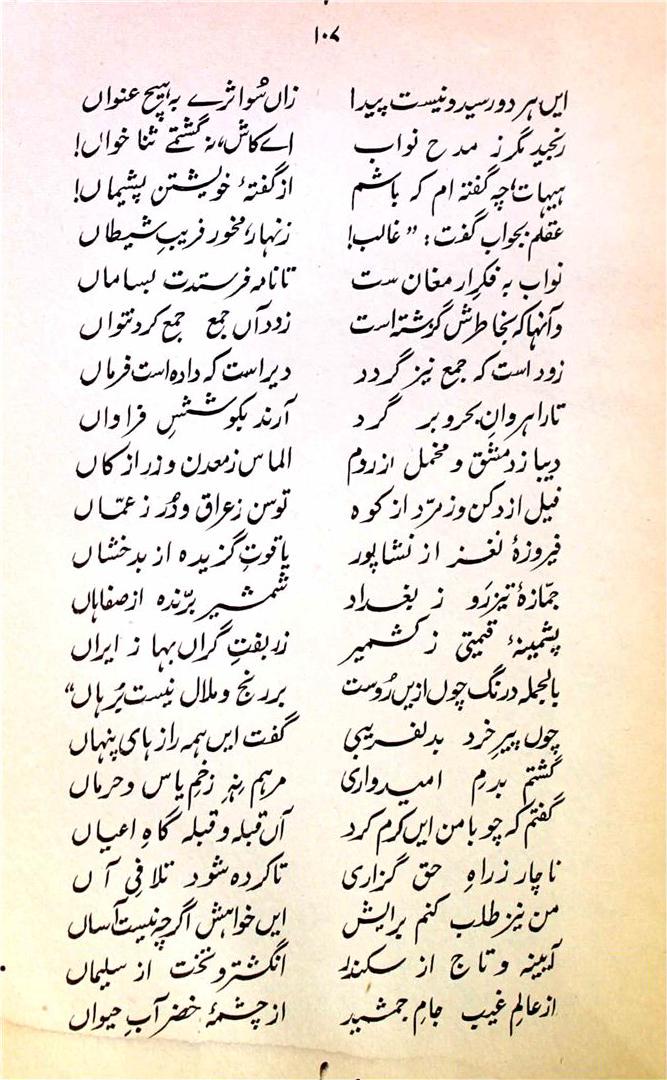 ۱۰۷
ایں هر دو رسید و نیست پیدا زاں سُو اثرے به هیچ عنواں
رنجید مگر ز مدح نواب اے کاش، نه گشتمے ثنا خواں!
هیهات! چه گفته ام که باشم از گفتهٔ خویشتن پشیماں!
عقلم بجواب گفت: "غالب! زنهار، مخور فریبِ شیطاں
نواب به فکرِ ارمغان ست تا نامه فرستدت بساماں
وآنها که بخاطرش گزشته است زود آں جمع جمع کرد نتواں
زود است که جمع نیز گردد دیر است که داده است فرماں
تا راهروانِ بحر و بر گرد آرند بکوششِ فراواں
دیبا ز دمشق و مخمل از روم الماس ز معدن و زر از کاں
فیل از دکن و زمرّد از کوه توسن ز عراق و دُر ز عمّاں
فیروزهٔ نغز از نشاپور یاقوتِ گزیده از بدخشاں
جمّازهٔ تیز رَو ز بغداد شمشیر برّنده از صفاهاں
پشمینهٔ قیمتی ز کشمیر زربفتِ گراں بها ز ایراں
بالجمله درنگ چوں ازیں رُوست بر رنج و ملال نیست بُرهاں"
چوں پیرِ خرد بدلفریبی گفت ایں همه راز هاے پنهاں
گشتم بدمِ امیدواری مرهم نِهِ زخمِ یاس و حرماں
گفتم که چو با من ایں کرم کرد آں قبله و قبله گاهِ اعیاں
ناچار ز راهِ حق گزاری تا کرده شود تلافیِ آں
من نیز طلب کنم برایش ایں خواهش اگرچه نیست آساں
آیینه و تاج از سکندر انگشتر و تخت از سلیماں
از عالمِ غیب جامِ جمشید از چشمهٔ خضر آبِ حیواں